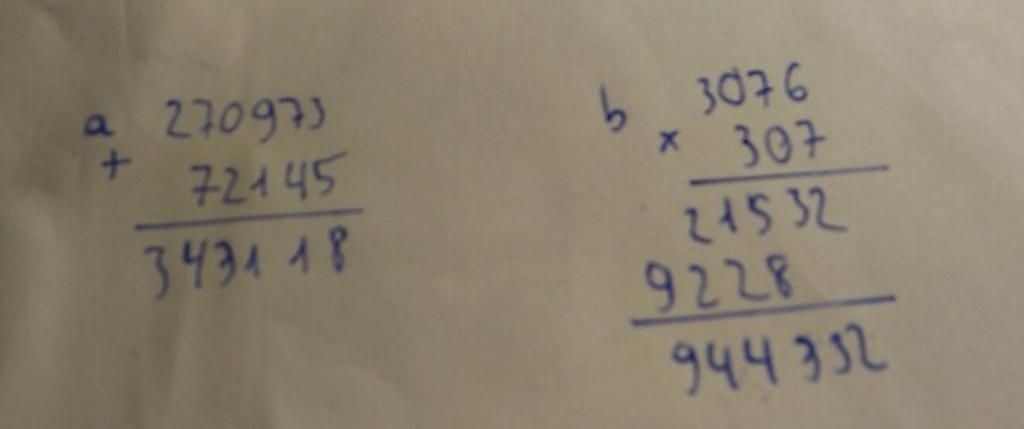 a 270973
+ 72145
343118
b 3076
× 307
21532
9228
944332